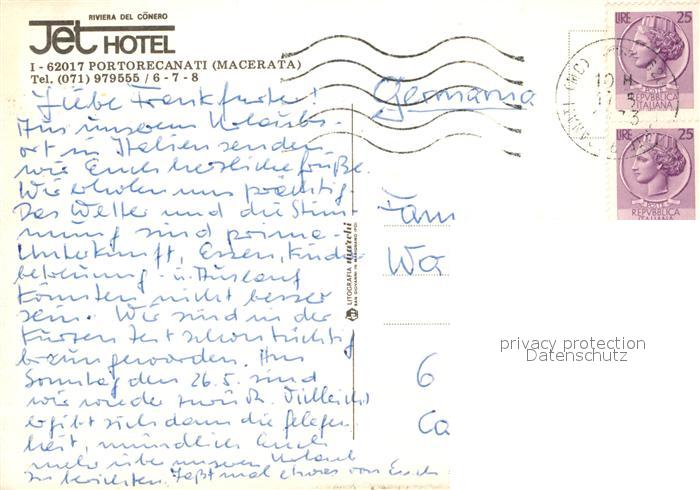 RIVIERA DEL CÒNERO
Jet HOTEL
I - 62017 PORTORECANATI (MACERATA)
Tel. (071) 979555 / 6 - 7 - 8
Liebe Frankfurter!
Aus unserem Urlaubs-
ort in Italien senden
wir Euch herzliche Grüße.
Wir erholen uns prächtig.
Das Wetter und die Stim-
mung sind prima.
Unterkunft, Essen, Kinder-
betreuung u. Auslauf
könnten nicht besser
sein. Wir sind in der
kurzen Zeit schon tüchtig
braun geworden. Am
Sonntag den 26.5. sind
wir wieder zurück. Vielleicht
ergibt sich dann die Gelegen-
heit, mündlich Euch
mehr über unseren Urlaub
zu berichten. Laßt mal etwas von Euch
Germania
Fam
Wa
6
Ca
LITOGRAFIA marchi
LIRE 25
POSTE
REPVBBLICA
ITALIANA
LIRE 25
POSTE
REPVBBLICA
ITALIANA
privacy protection
Datenschutz